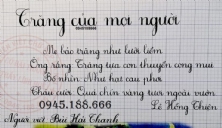 Trăng của mọi người
0945188666
Mẹ bảo trăng như lưỡi liềm
Ông rằng: Trăng tựa con thuyền cong mui
Bà nhìn: Như hạt cau phơi
Cháu cười: Quả chín vàng tươi ngoài vườn.
0945.188.666
Lê Hồng Thiện
Người viết Bùi Hữu Thanh